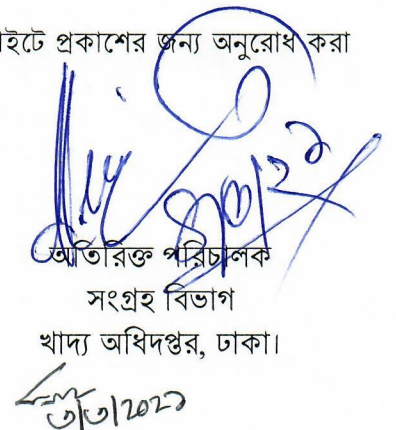 ইটে প্রকাশের জন্য অনুরোধ করা
অতিরিক্ত পরিচালক
সংগ্রহ বিভাগ
খাদ্য অধিদপ্তর, ঢাকা।
৩/৩/২০২১